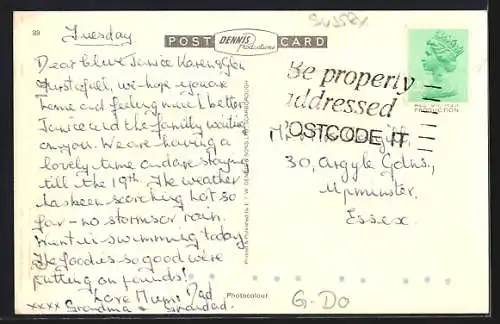 39
Tuesday
POST DENNIS Productions CARD
SUSSEX
Dear Clive Janice Karen & Glen
First of all, we hope you are
home and feeling much better
Janice and the family waiting
on you. We are having a
lovely time and are staying
till the 19th. The weather
has been scorching hot so
far - no storms or rain.
Went in swimming today
The food is so good we're
putting on pounds!
Love Mum & Dad
xxxx Grandma & Grandad.
Photocolour
Be properly
addressed
POSTCODE IT
30, Argyle Gdns,
Upminster,
Essex.
G-DO